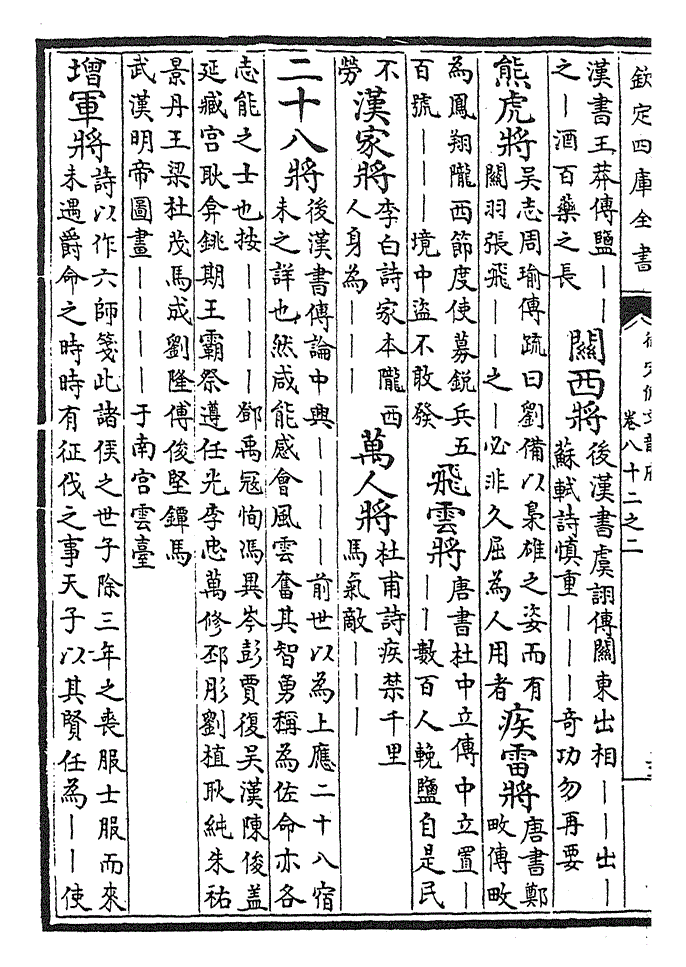 欽定四庫全書
卷八十二之二
漢書王莽傳鹽｜｜
之｜酒百藥之長
關西將
後漢書虞詡傳關東出相｜｜出｜
蘇軾詩慎重｜｜｜奇功勿再要
熊虎將
吳志周瑜傳疏曰劉備以梟雄之姿而有
關羽張飛｜｜之｜必非久屈為人用者
疾雷將
唐書鄭
畋傳畋
為鳳翔隴西節度使募銳兵五
百號｜｜｜境中盜不敢發
飛雲將
唐書杜中立傳中立置｜
｜｜數百人輓鹽自是民
不
勞
漢家將
李白詩家本隴西
人身為｜｜｜
萬人將
杜甫詩疾禁千里
馬氣敵｜｜｜
二十八將
後漢書傳論中興｜｜｜｜前世以為上應二十八宿
未之詳也然咸能感會風雲奮其智勇稱為佐命亦各
志能之士也按｜｜｜｜鄧禹冦恂馮異岑彭賈復吳漢陳俊蓋
延臧宮耿弇銚期王霸祭遵任光李忠萬修邳彤劉植耿純朱祐
景丹王梁杜茂馬成劉隆傅俊堅鐔馬
武漢明帝圖畫｜｜｜｜于南宮雲臺
增軍將
詩以作六師箋此諸侯之世子除三年之喪服士服而來
未遇爵命之時時有征伐之事天子以其賢任為｜｜使